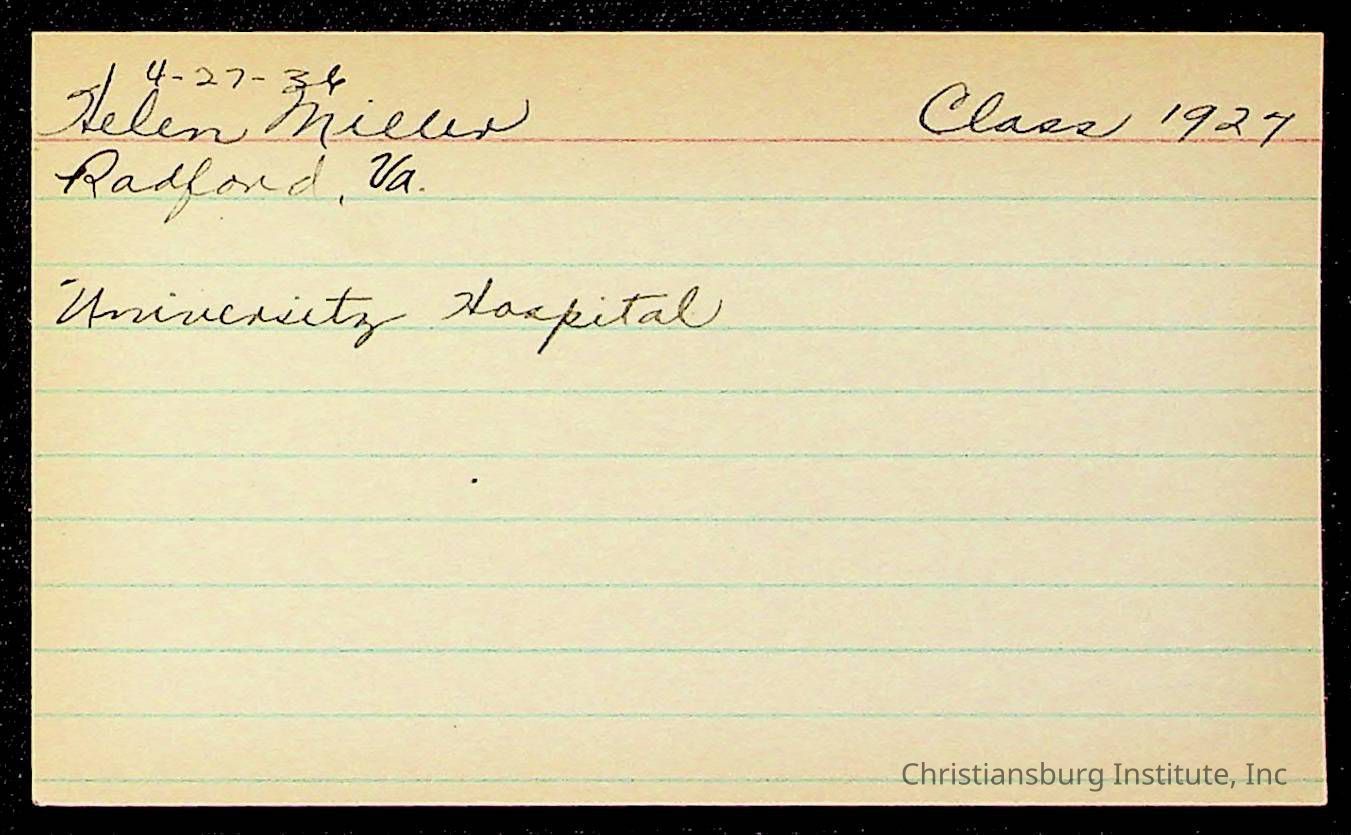 4-27-36
Helen Miller Class 1927
Radford, Va.
University Hospital
Christiansburg Institute, Inc